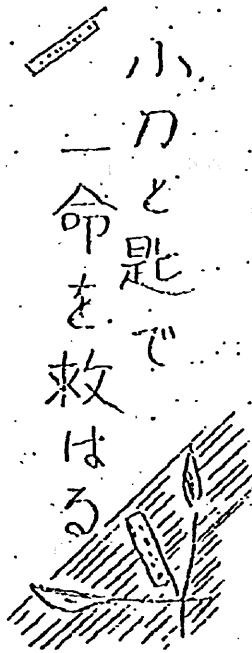 小刀と匙で
一命を救はる